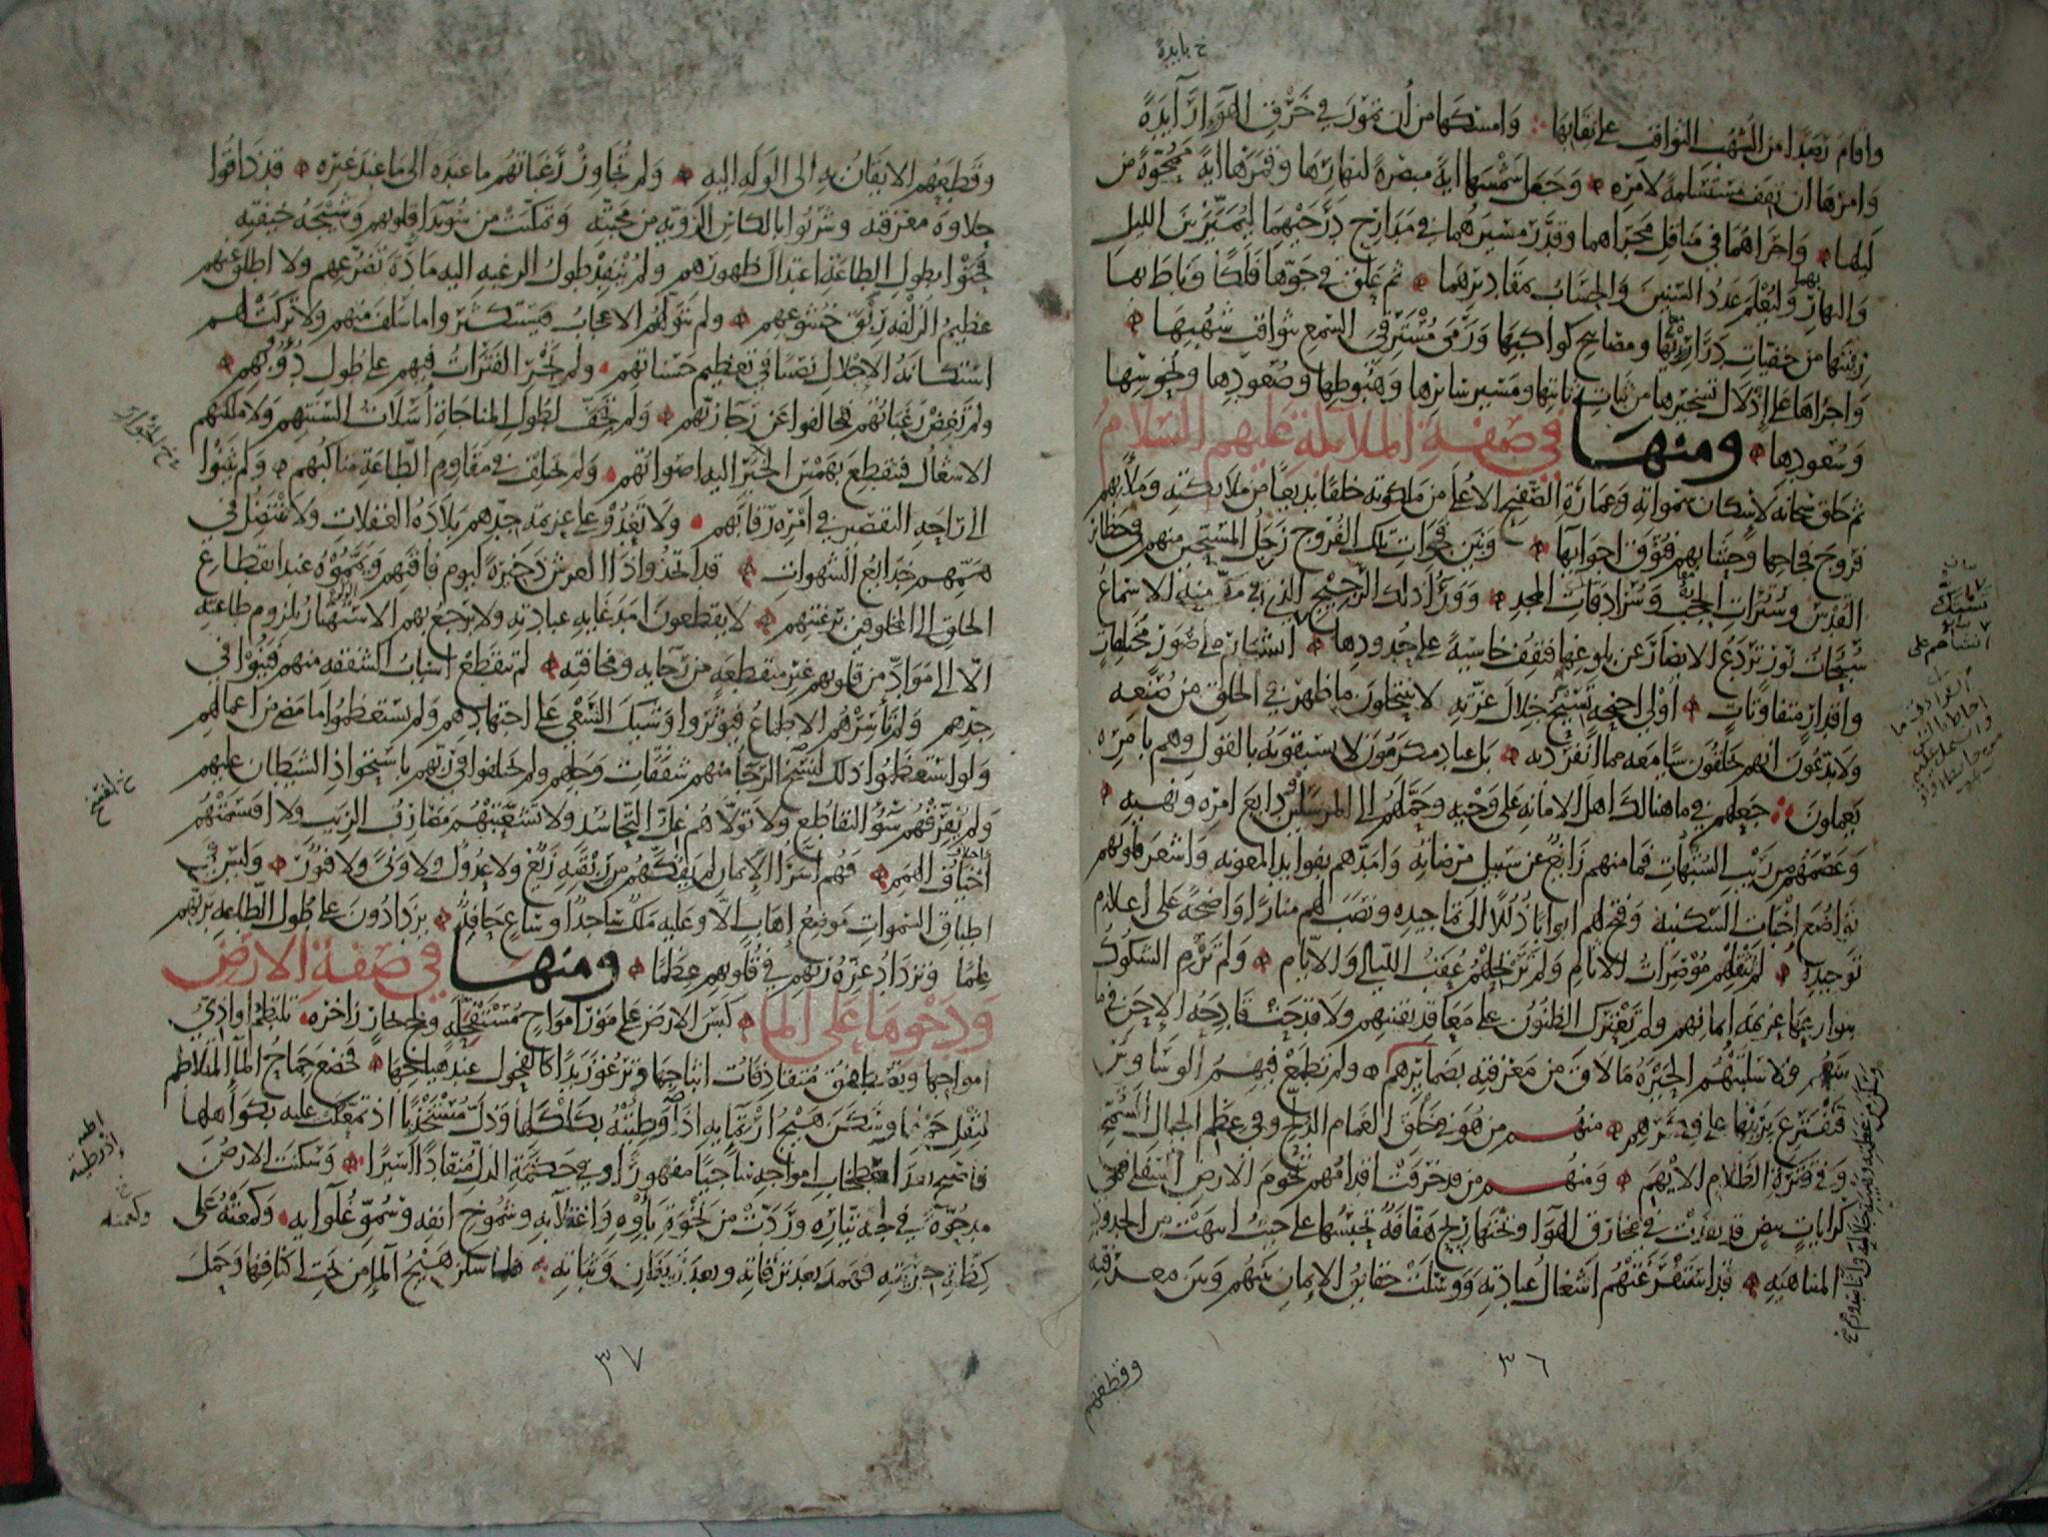 خ بايده
واقام رصدا من الشهب الثواقب على نقابها وامسكها من أن تمور في خرق الهواء آيدة
وامرها ان تقف مستسلمة لامره وجعل شمسها اية مبصرة لنهارها وقمرها اية ممحوة من
ليلها واجراهما في مناقل مجراهما وقدر مسيرهما في مدارج درجهما ليميز بين الليل
والنهار بهما وليعلم عدد السنين والحساب بمقاديرهما ثم علق في جوها فلكا وناط بها
زينتها من خفيات دراريها ومصابيح كواكبها ورمى مسترقي السمع بثواقب شهبها
واجراها على اذلال تسخيرها من ثبات ثابتها ومسير سائرها وهبوطها وصعودها ونحوسها
وسعودها ومنها في صفة الملائكة عليهم السلام
ثم خلق سبحانه لاسكان سمواته وعمارة الصفيح الاعلى من ملكوته خلقا بديعا من ملائكته وملأ بهم
فروج فجاجها وحشا بهم فتوق اجوائها وبين فجوات تلك الفروج زجل المسبحين منهم في حظائر
القدس وسترات الحجب وسرادقات المجد ووراء ذلك الرجيج الذي تستك منه الاسماع
سبحات نور تردع الابصار عن بلوغها فتقف خاسئة على حدودها انشاهم على صور مختلفات
واقدار متفاوتات أولي اجنحة تسبح جلال عزته لا ينتحلون ما ظهر في الخلق من صنعه
ولا يدعون انهم يخلقون شيا معه مما انفرد به بل عباد مكرمون لا يسبقونه بالقول وهم بامره
يعملون جعلهم في ما هنالك اهل الامانة على وحيه وحملهم الى المرسلين ودايع امره ونهيه
وعصمهم من ريب الشبهات فما منهم زايغ عن سبيل مرضاته وامدهم بفوايد المعونة واشعر قلوبهم
تواضع اخبات السكينة وفتح لهم ابوابا ذللا الى تماجيده ونصب لهم منارا واضحة على اعلام
توحيده لم تثقلهم موصرات الاثام ولم ترتحلهم عقب الليالي والايام ولم ترم الشكوك
بنوازعها عزيمة ايمانهم ولم تعترك الظنون على معاقد يقينهم ولا قدحت قادحة الإحن في ما
بينهم ولا سلبتهم الحيرة ما لاق من معرفته بضمائرهم ولم تطمع فيهم الوساوس
فتقترع برينها على فكرهم منهم من هو في خلق الغمام الدلح وفي عظم الجبال الشمخ
وفي قترة الظلام الايهم ومنهم من قد خرقت اقدامهم تخوم الارض السفلى فهي
كرايات بيض قد نفذت في مخارق الهوا وتحتها ريح هفافة تحبسها على حيث انتهت من الحدود
المتناهية قد استفرغتهم اشغال عبادته ووسلت حقائق الإيمان بينهم وبين معرفته
وسكن من عظمته وهيبة جلالته في اثناء صدورهم
٣٦
وقطعهم
وقطعهم الايقان به الى الوله اليه ولم تجاوز رغباتهم ما عنده الى ما عند غيره قد ذاقوا
حلاوة معرفته وشربوا بالكاس الروية من محبته وتمكنت من سويداء قلوبهم وشيجة خيفته
فحنوا بطول الطاعة اعتدال ظهورهم ولم ينفد طول الرغبة اليه مادة تضرعهم ولا اطلق عنهم
عظيم الزلفة ربق خشوعهم ولم يتولهم الاعجاب فيستكثروا ما سلف منهم ولا تركت لهم
استكانة الإجلال نصيبا في تعظيم حسناتهم ولم تجر الفترات فيهم على طول دؤوبهم
ولم تغض رغباتهم فيخالفوا عن رجا ربهم ولم تجف لطول المناجاة أسلات السنتهم ولا ملكتهم
الاشغال فتنقطع بهمس الخير اليه اصواتهم ولم تختلف في مقاوم الطاعة مناكبهم ولم يثنوا
الى راحة التقصير في امره رقابهم ولا تعدو على عزيمة جدهم بلادة الغفلات ولا تنتضل في
هممهم خدايع الشهوات قد اتخذوا ذا العرش ذخيرة ليوم فاقتهم ويمموه عند انقطاع
الخلق الى المخلوقين برغبتهم لا يقطعون امد غاية عبادته ولا يرجع بهم الاستهتار بلزوم طاعته
الا الى مواد من قلوبهم غير منقطعة من رجايه ومخافته لم تنقطع اسباب الشفقة منهم فينوا في
جدهم ولم تأسرهم الاطماع فيوثروا وشيك السعي على اجتهادهم ولم يستعظموا ما مضى من اعمالهم
ولو استعظموا ذلك لنسخ الرجا منهم شفقات وجلهم ولم يختلفوا في ربهم باستحواذ الشيطان عليهم
ولم يفرقهم سؤ التقاطع ولا تولاهم غل التحاسد ولا تشعبتهم مصارف الريب ولا اقتسمتهم
أخياف الهمم فهم اسراء الإيمان لم يفكهم من ربقته زيغ ولا عدول ولا ونى ولا فتور وليس في
اطباق السموات موضع إهاب الا وعليه ملك ساجد او ساع حافد يزدادون على طول الطاعة بربهم
علما وتزداد عزة ربهم في قلوبهم عظما ومنها في صفة الارض
ودحوها على الماء كبس الارض على مور امواج مستفحلة ولجج بحار زاخرة تلتطم اواذي
امواجها وتصطفق متقاذفات اثباجها وترغو زبدا كالفحول عند هياجها فخضع جماح الماء المتلاطم
لثقل حملها وسكن هيج ارتمايه اذ وطئته بكلكلها وذل مستخذيا اذ تمعكت عليه بكواهلها
فاصبح بعد اصطخاب امواجه ساجيا مقهورا وفي حكمة الذل منقادا اسيرا وسكنت الارض
مدحوة في لجة تياره وردت من نخوة باوه واعتلائه وشموخ انفه وسمو غلوائه وكعمته على
كظة جريته فهمد بعد نزقاته وبعد زيفان وثباته فلما سكن هيج الماء من تحت اكنافها وحمل
٣٧